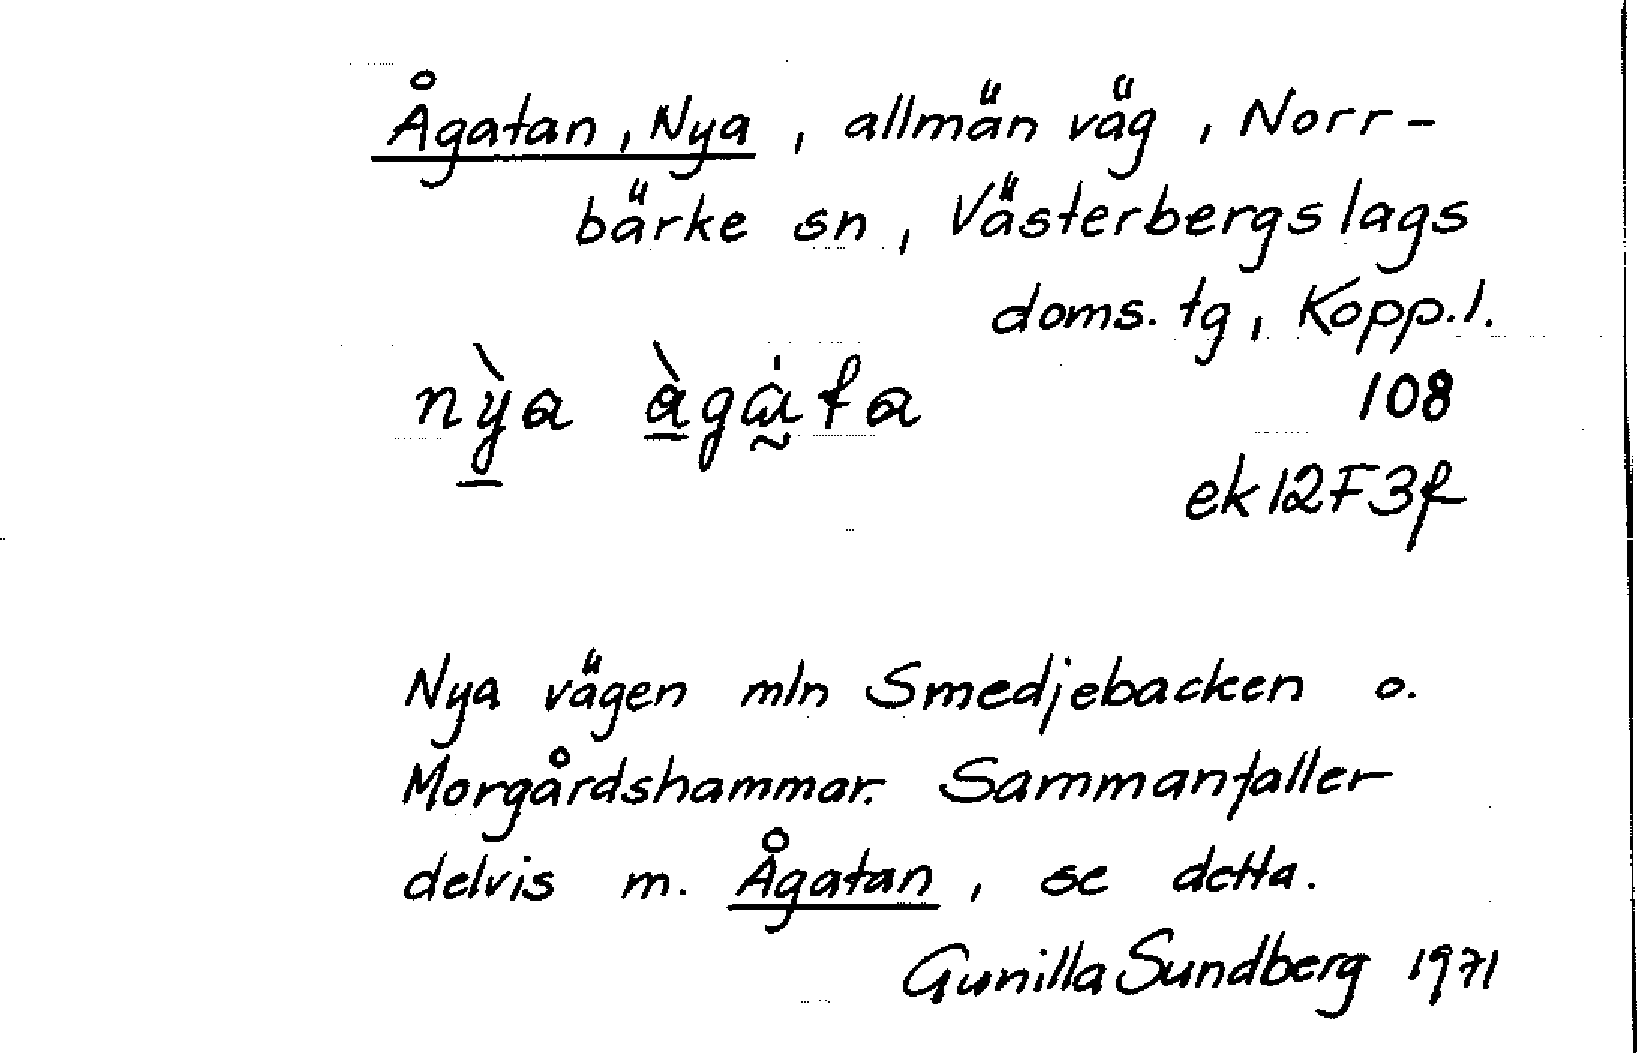 Ågatan, Nya, allmän väg, Norr-
bärke sn, Västerbergslags
doms. tg, Kopp.l.
nỳa àgáta 108
ek12F3f
Nya vägen mln Smedjebacken o.
Morgårdshammar. Sammanfaller
delvis m. Ågatan, se detta.
Gunilla Sundberg 1971